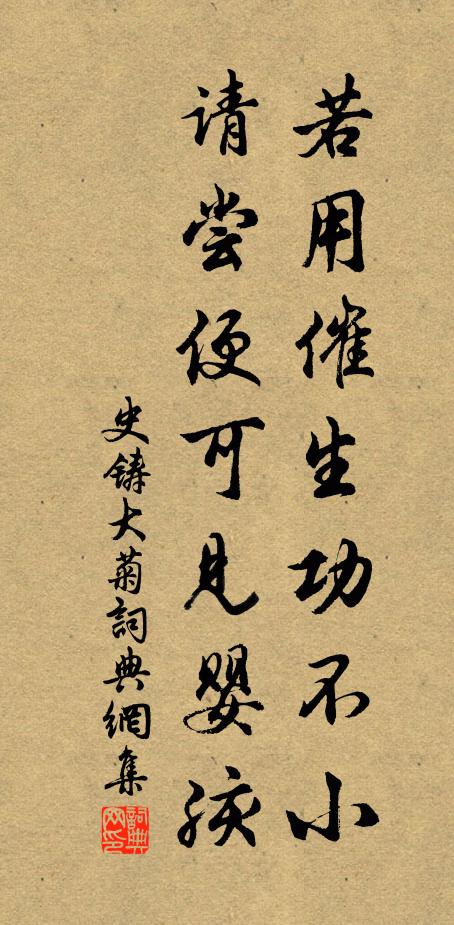 若用催生功不小
请尝便可见婴孩
史铸大菊詞典網集
詞典网印